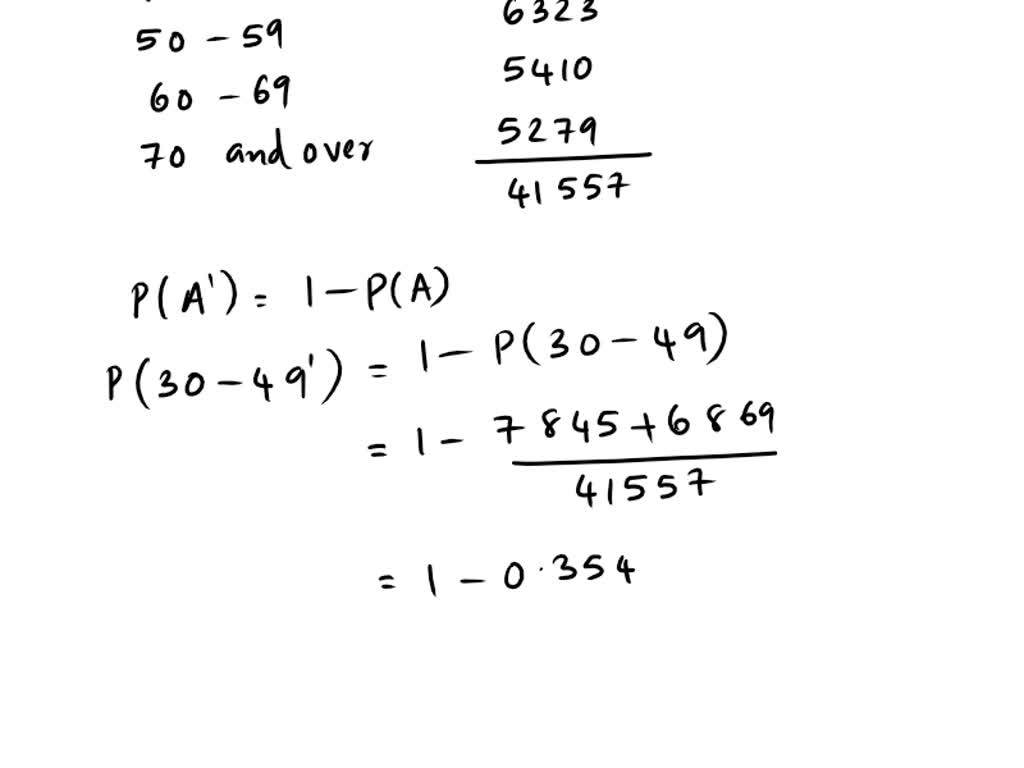 50 - 59 6323
60 - 69 5410
70 and over 5279
41557
P(A') = 1 - P(A)
P(30 - 49') = 1 - P(30 - 49)
= 1 - 7845 + 6869
41557
= 1 - 0.354